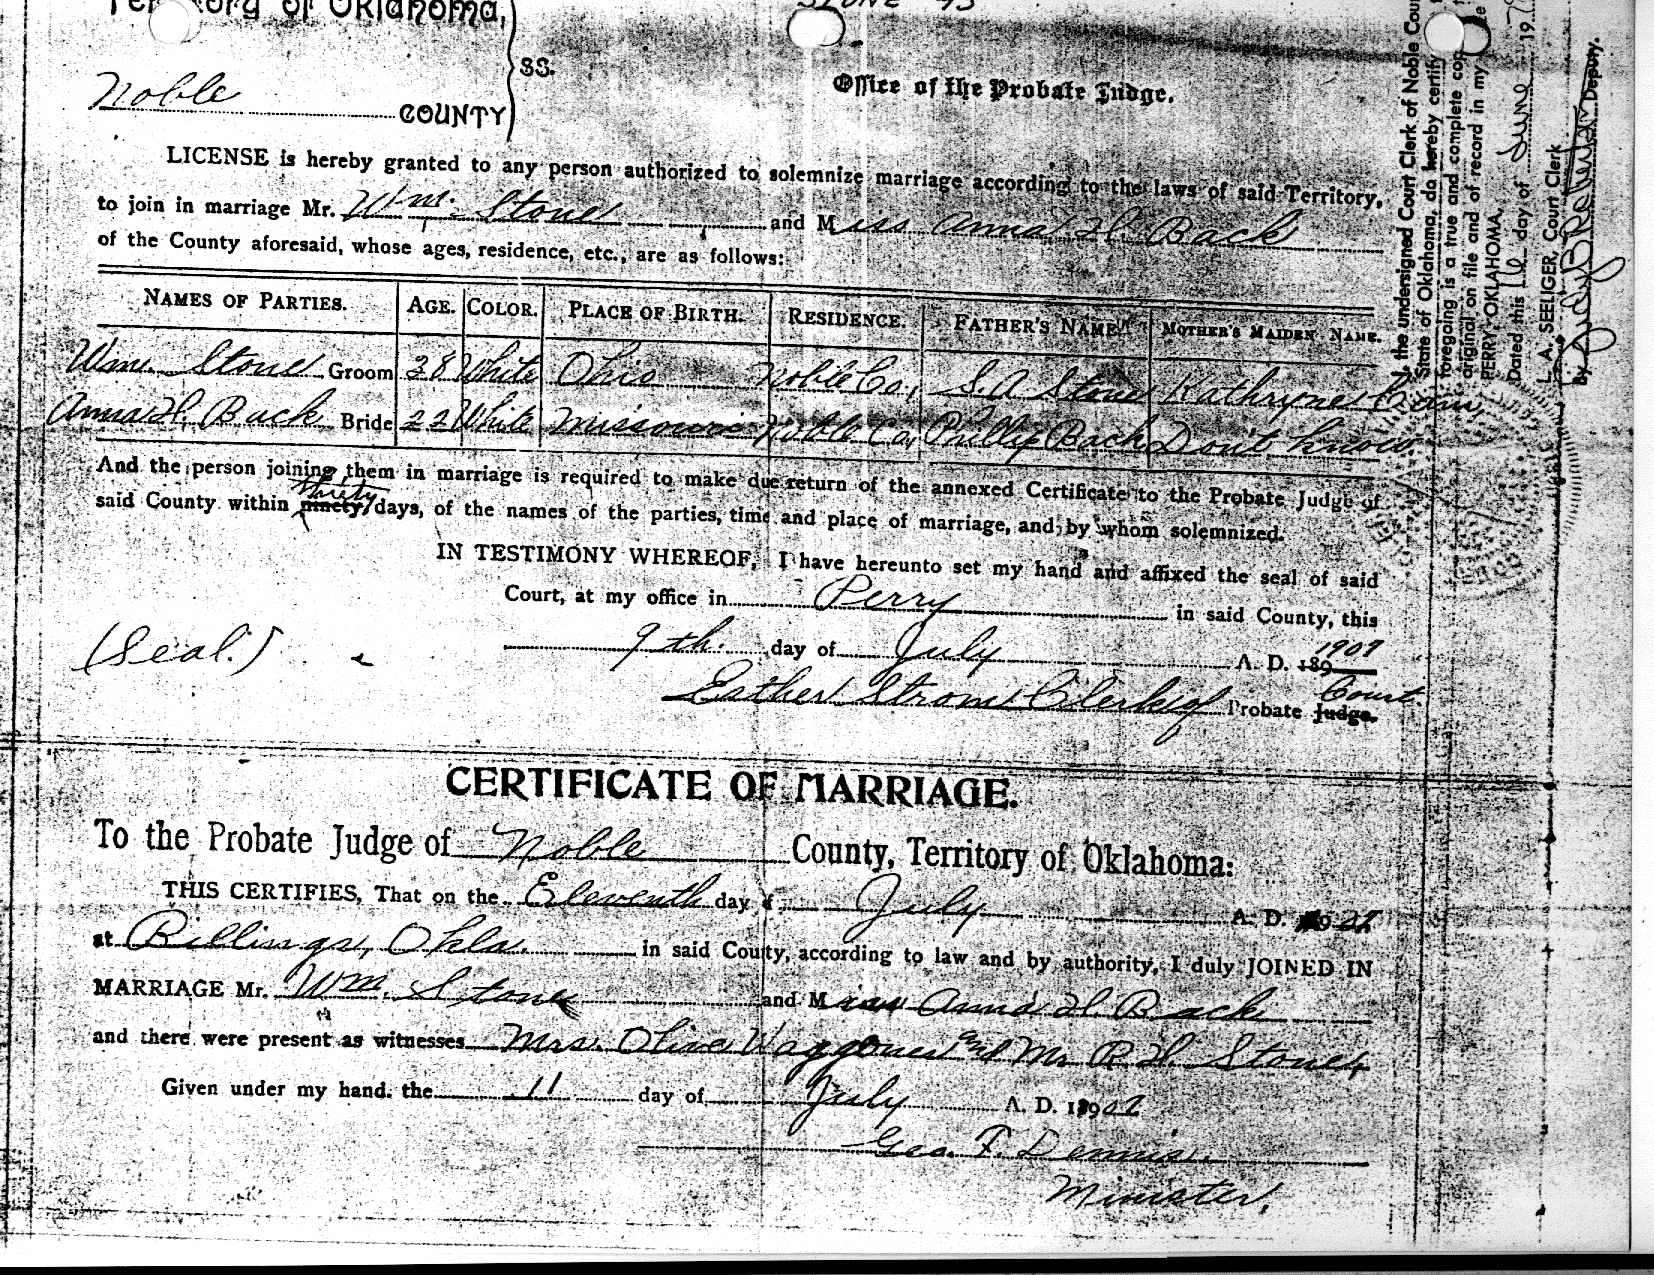 Territory of Oklahoma,
STONE 95
Noble COUNTY
SS.
Office of the Probate Judge.
LICENSE is hereby granted to any person authorized to solemnize marriage according to the laws of said Territory,
to join in marriage Mr. Wm. Stone and Miss Anna H. Back
of the County aforesaid, whose ages, residence, etc., are as follows:
NAMES OF PARTIES. AGE. COLOR. PLACE OF BIRTH. RESIDENCE. FATHER'S NAME. MOTHER'S MAIDEN NAME.
Wm. Stone Groom 28 White Ohio Noble Co., S. A Stone Kathryne
Anna H. Back Bride 22 White Missouri Noble Co, Phillip Back Don't know
And the person joining them in marriage is required to make due return of the annexed Certificate to the Probate Judge of
thirty
said County within ninety days, of the names of the parties, time and place of marriage, and by whom solemnized.
IN TESTIMONY WHEREOF, I have hereunto set my hand and affixed the seal of said
Court, at my office in Perry in said County, this
(Seal.) 9th. day of July A. D. 189 1907
Esther Strom Clerk of Probate Judge. Court.
CERTIFICATE OF MARRIAGE.
To the Probate Judge of Noble County, Territory of Oklahoma:
THIS CERTIFIES, That on the Eleventh day of July A. D. 1907.
at Billings, Okla. in said County, according to law and by authority, I duly JOINED IN
MARRIAGE Mr. Wm. Stone and Miss Anna H. Back
and there were present as witnesses Mrs. Olive Waggoner and Mr R. H. Stone,
Given under my hand the 11 day of July A. D. 1907
Geo. F. Dennis.
Minister,
I, the undersigned Court Clerk of Noble Cou
State of Oklahoma, do hereby certify
foregoing is a true and complete cop
original on file and of record in my
PERRY, OKLAHOMA,
Dated this day of June 19
L. A. SEELIGER, Court Clerk
By Deputy.